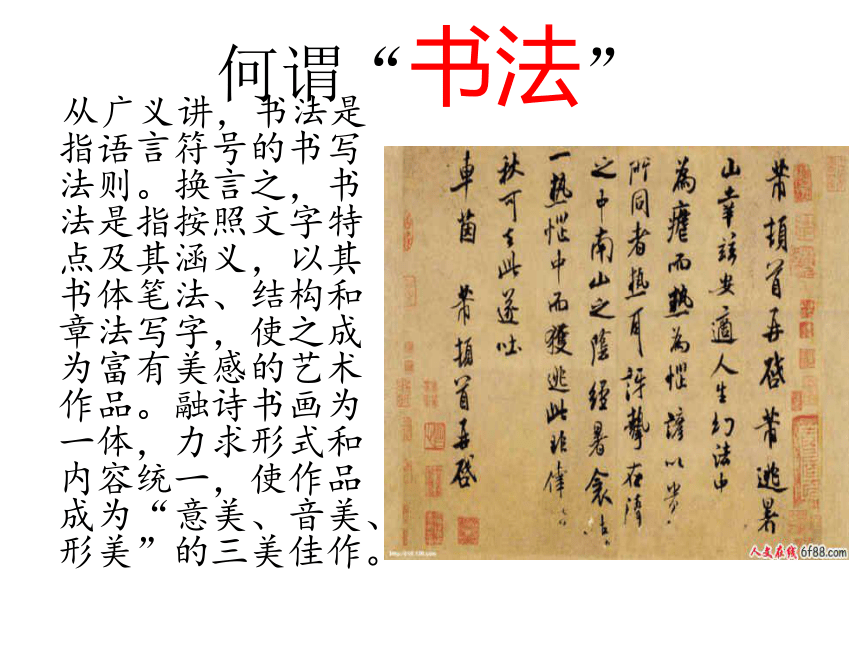 何谓“书法”
从广义讲，书法是
指语言符号的书写
法则。换言之，书
法是指按照文字特
点及其涵义，以其
书体笔法、结构和
章法写字，使之成
为富有美感的艺术
作品。融诗书画为
一体，力求形式和
内容统一，使作品
成为“意美、音美、
形美”的三美佳作。
芾顿首再启芾逃暑
山幸兹安适人生幻法中
為瘧而热為惱諺以貴
所同者热耳訝挈在陶
之中南山之陰經暑衾
一热惱中而獲逃此非偉
秋可去此遂吐
車茵 芾頓首再啓
人文在线 6f88.com